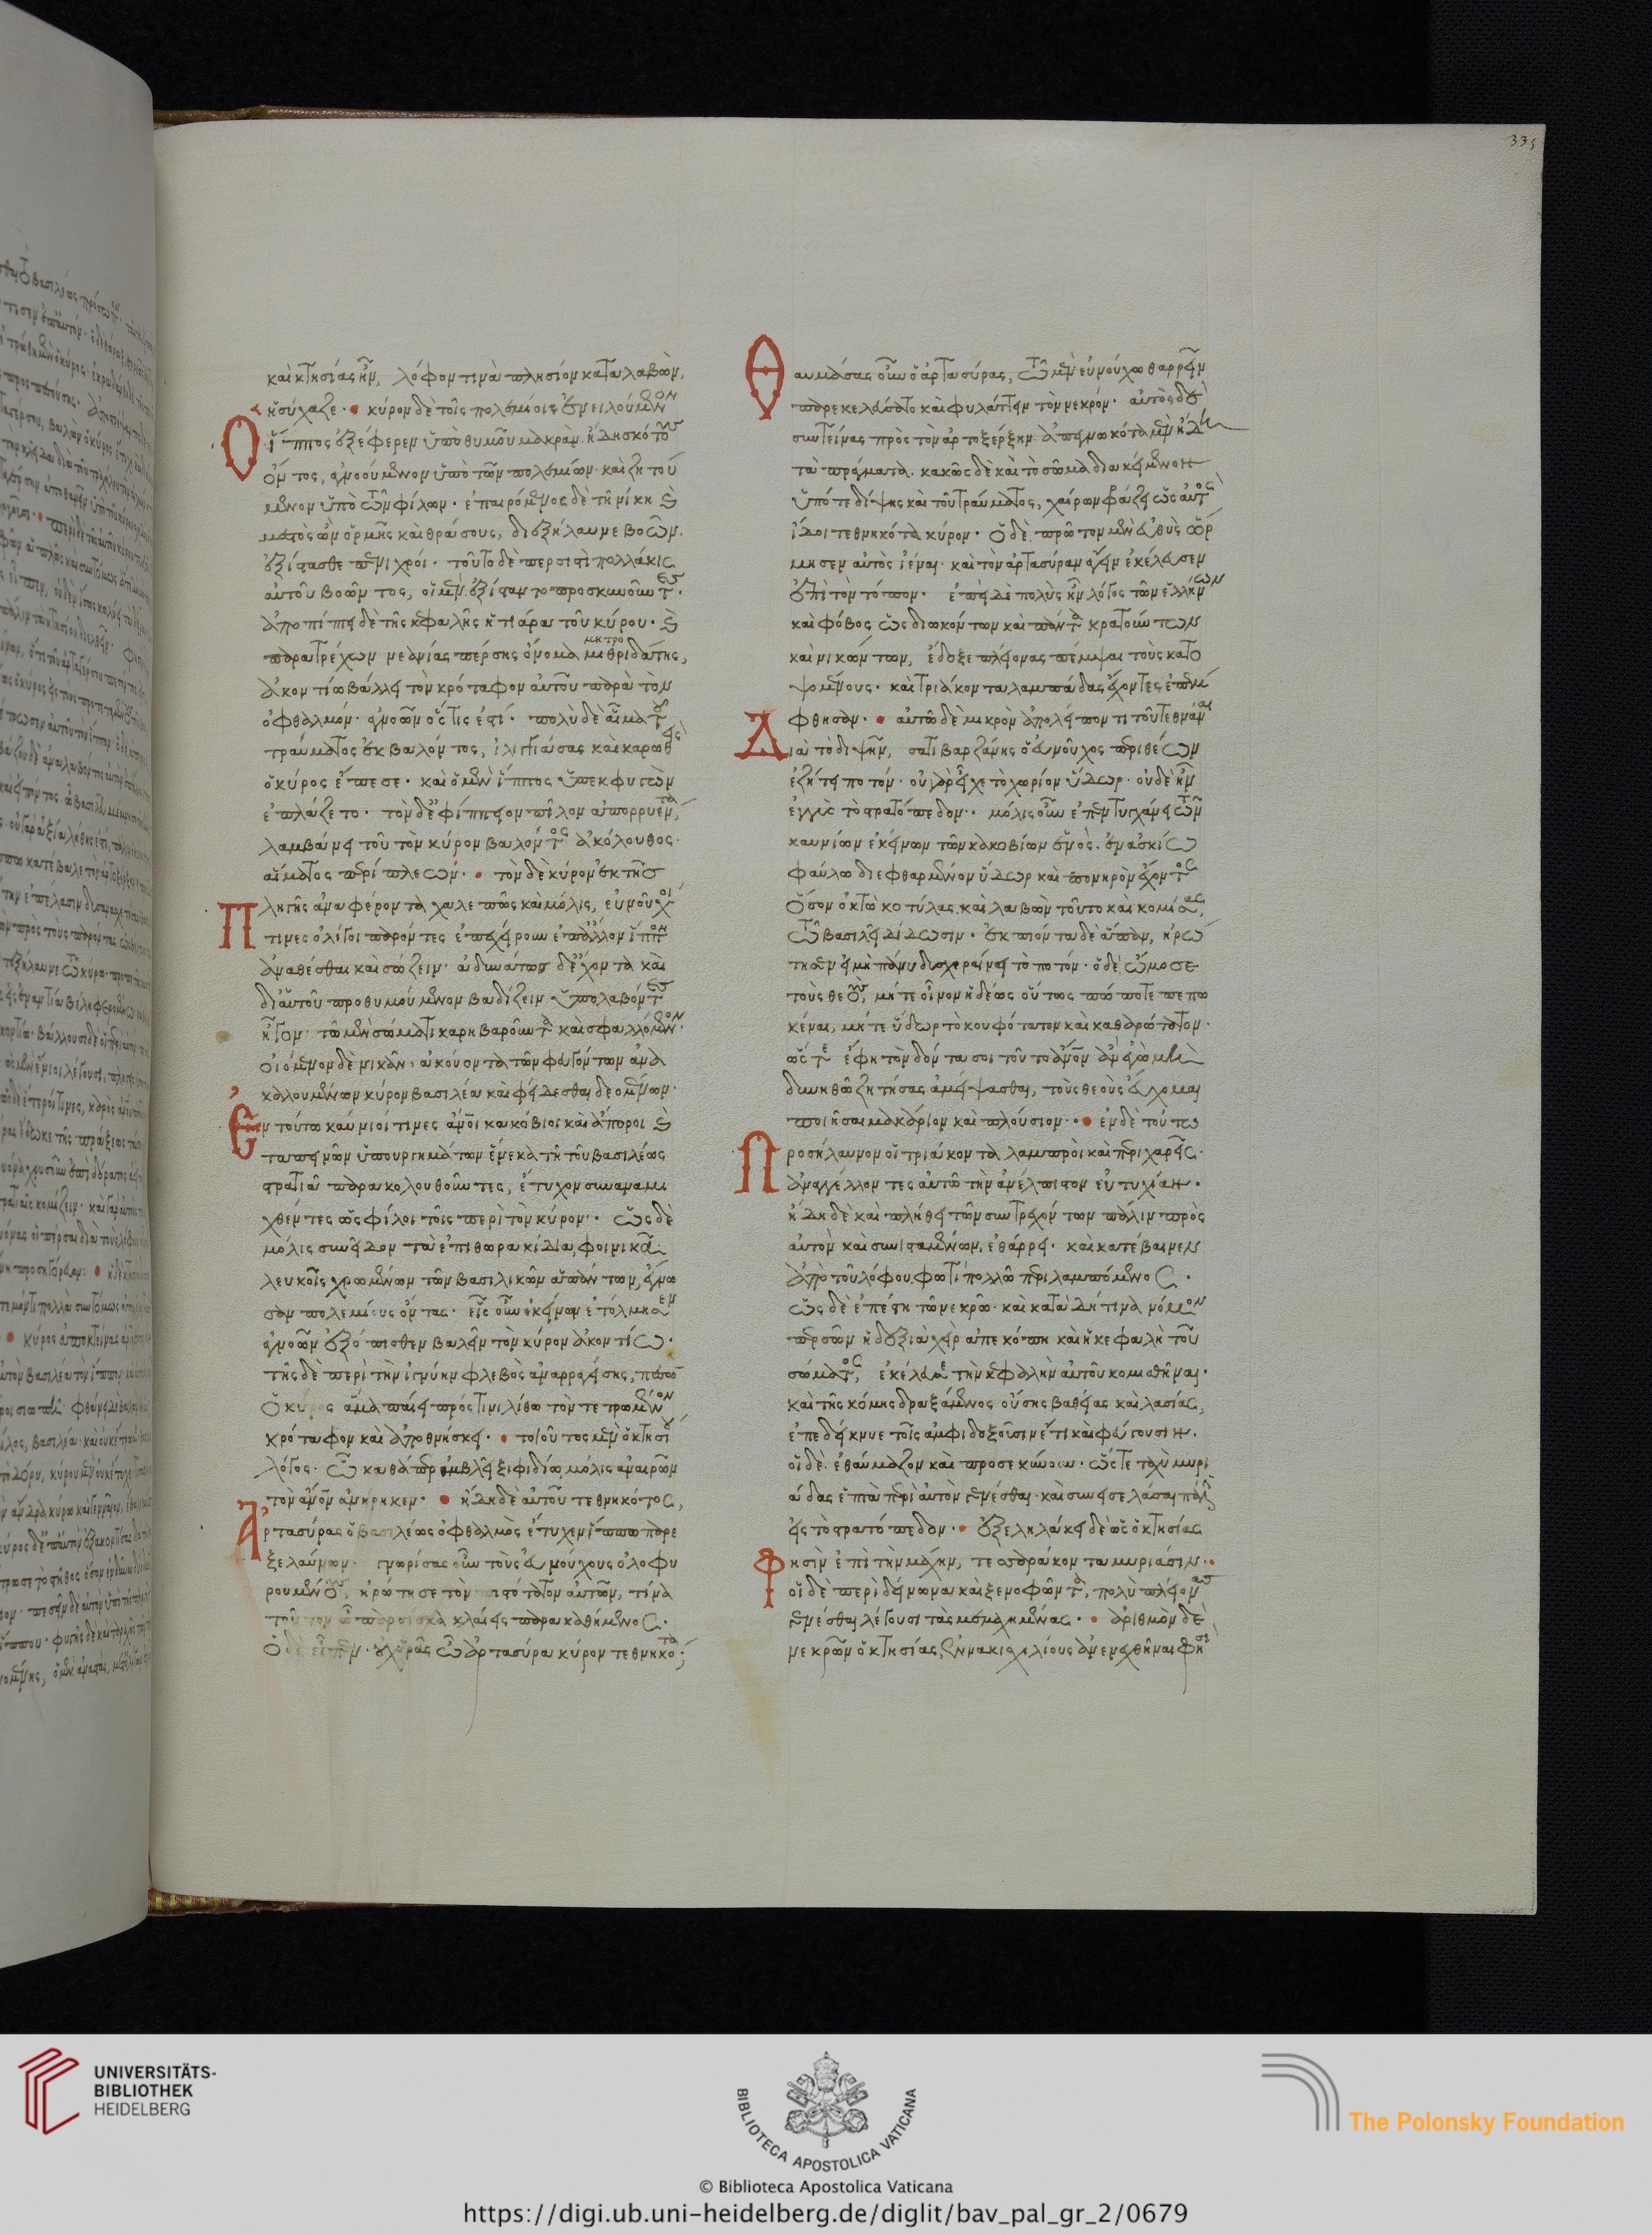 καὶ κτησίας ἦν, λόφον τινὰ πλησίον καταλαβὼν,
ἡσύχαζε· κύρον δὲ τοῖς πολεμίοις ἐνειλούμενον
ὁ ἵππος ἐξέφερεν ὑπὸ θυμοῦ μακρὰν· ἤδη σκότους
ὄντος, ἀγνοούμενον ὑπὸ τῶν πολεμίων· καὶ ζητού
μενον ὑπὸ τῶν φίλων· ἐπαιρόμενος δὲ τῇ νίκῃ καὶ
μεστὸς ὢν ὁρμῆς καὶ θράσους, διεξήλαυνε βοῶν·
ἐξίστασθε πενιχροί· τοῦτο δὲ περσιστὶ πολλάκις
αὐτοῦ βοῶντος, οἱ μὲν ἐξίσταντο προσκυνοῦντες·
ἀποπίπτει δὲ τῆς κεφαλῆς ἡ τιάρα τοῦ κύρου· καὶ
μητρο
παρατρέχων νεανίας πέρσης ὄνομα μιθριδάτης,
ἀκοντίῳ βάλλει τὸν κρόταφον αὐτοῦ παρὰ τὸν
ὀφθαλμόν· ἀγνοῶν ὅστις ἐστί· πολὺ δὲ αἷμα τοῦ
τραύματος ἐκβαλόντος, ἰλιγγιάσας καὶ καρωθεὶς
ὁ κύρος ἔπεσε· καὶ ὁ μὲν ἵππος ὑπεκφυγὼν
ἐπλάζετο· τὸν δ' ἐφίππειον πῖλον ἀπορρυέντα,
λαμβάνει τοῦ τὸν κύρον βαλόντος ἀκόλουθος
αἵματος περίπλεων· τὸν δὲ κύρον ἐκ τῆς
πληγῆς ἀναφέροντα χαλεπῶς καὶ μόλις, εὐνοῦχοί
τινες ὀλίγοι παρόντες ἐπεχείρουν ἐπ' ἄλλον ἵππον
ἀναθέσθαι καὶ σώζειν· ἀδυνάτως δ' ἔχοντα καὶ
δι' αὑτοῦ προθυμούμενον βαδίζειν ὑπολαβόντες
ἦγον· τῷ μὲν σώματι καρηβαροῦντα καὶ σφαλλόμενον·
οἰόμενον δὲ νικᾶν, ἀκούοντα τῶν φευγόντων ἀνα
καλουμένων κύρον βασιλέα καὶ φείδεσθαι δεομένων·
ἐν τούτῳ καύνιοί τινες ἄνθρωποι κακόβιοι καὶ ἄποροι καὶ
ταπεινῶν ὑπουργημάτων ἕνεκα τῇ τοῦ βασιλέως
στρατιᾷ παρακολουθοῦντες, ἔτυχον συναναμι
χθέντες ὡς φίλοι τοῖς περὶ τὸν κύρον· ὡς δὲ
μόλις συνεῖδον τὰ ἐπιθωρακίδια φοινικᾶ,
λευκοῖς χρωμένων τῶν βασιλικῶν ἁπάντων, ἔγνω
σαν πολεμίους ὄντας· εἷς οὖν ἐκείνων ἐτόλμησεν
ἀγνοῶν ἐξόπισθεν βαλεῖν τὸν κύρον ἀκοντίῳ·
τῆς δὲ περὶ τὴν ἰγνύην φλεβὸς ἀναρραγείσης, πεσὼν
ὁ κύρος ἅμα παίει πρός τινι λίθῳ τὸν τετρωμένον
κρόταφον καὶ ἀποθνήσκει· τοιοῦτος μὲν ὁ κτησίου
λόγος· ᾧ καθάπερ ἀμβλεῖ ξιφιδίῳ, μόλις ἀναιρῶν
τὸν ἄνθρωπον ἀνῄρηκεν· ἤδη δὲ αὐτοῦ τεθνηκότος,
ἀρτασύρας ὁ βασιλέως ὀφθαλμὸς ἔτυχεν ἵππῳ παρε
ξελαύνων· γνωρίσας οὖν τοὺς εὐνούχους ὀλοφυ
ρομένους, ἠρώτησε τὸν πιστότατον αὐτῶν, τίνα
τοῦτον ὦ παρίσκα κλαίεις παρακαθήμενος·
ὁ δὲ εἶπεν· οὐχ ὁρᾷς ὦ ἀρτασύρα κύρον τεθνηκότα;
θαυμάσας οὖν ὁ ἀρτασύρας, τῷ μὲν εὐνούχῳ θαρρεῖν
παρεκελεύσατο καὶ φυλάττειν τὸν νεκρόν· αὐτὸς δὲ
συντείνας πρὸς τὸν ἀρτοξέρξην ἀπεγνωκότα μὲν ἤδη
τὰ πράγματα· κακῶς δὲ καὶ τὸ σῶμα διακείμενον
ὑπό τε δίψης καὶ τοῦ τραύματος, χαίρων φράζει ὡς αὐτὸς
ἴδοι τεθνηκότα κύρον· ὁ δὲ πρῶτον μὲν εὐθὺς ὥρ
μησεν αὐτὸς ἰέναι· καὶ τὸν ἀρτασύραν ἄγειν ἐκέλευσεν
ἐπὶ τὸν τόπον· ἐπεὶ δὲ πολὺς ἦν λόγος τῶν ἑλλήνων
καὶ φόβος ὡς διωκόντων καὶ πάντα κρατούντων
καὶ νικώντων, ἔδοξε πλείονας πέμψαι τοὺς κατο
ψομένους· καὶ τριάκοντα λαμπάδας ἔχοντες ἐπέμ
φθησαν· αὐτῷ δὲ μικρὸν ἀπολείποντι τοῦ τεθνάναι
διὰ τὸ διψῆν, σατιβαρζάνης ὁ εὐνοῦχος περιθέων
ἐζήτει ποτόν· οὐ γὰρ εἶχε τὸ χωρίον ὕδωρ· οὐδὲ ἦν
ἐγγὺς τὸ στρατόπεδον· μόλις οὖν ἐπιτυγχάνει τῶν
καυνίων ἐκείνων τῶν κακοβίων ἑνὸς, ἐν ἀσκίῳ
φαύλῳ διεφθαρμένον ὕδωρ καὶ πονηρὸν ἔχοντος
ὅσον ὀκτὼ κοτύλας, καὶ λαβὼν τοῦτο καὶ κομίσας,
τῷ βασιλεῖ δίδωσιν· ἐκπιόντα δὲ ἅπαν, ἠρώ
τησεν εἰ μὴ πάνυ δυσχεραίνει τὸ ποτόν· ὁ δὲ ὤμοσε
τοὺς θεοὺς, μήτε οἶνον ἡδέως οὕτως πώποτε πεπω
κέναι, μήτε ὕδωρ τὸ κουφότατον καὶ καθαρώτατον·
ὥστε ἔφη τὸν δόντα σοι τοῦτο ἄνθρωπον ἂν ἐγὼ μὴ
δυνηθῶ ζητήσας ἀμείψασθαι, τοὺς θεοὺς εὔχομαι
ποιῆσαι μακάριον καὶ πλούσιον· ἐν δὲ τούτῳ
προσήλαυνον οἱ τριάκοντα λαμπροὶ καὶ περιχαρεῖς·
ἀναγγέλλοντες αὐτῷ τὴν ἀνέλπιστον εὐτυχίαν·
ἤδη δὲ καὶ πλήθει τῶν συντρεχόντων πάλιν πρὸς
αὐτὸν καὶ συνισταμένων, ἐθάρρει· καὶ κατέβαινεν
ἀπὸ τοῦ λόφου φωτὶ πολλῷ περιλαμπόμενος·
ὡς δὲ ἐπέστη τῷ νεκρῷ· καὶ κατὰ δή τινα νόμον
περσῶν ἡ δεξιὰ χεὶρ ἀπεκόπη καὶ ἡ κεφαλὴ τοῦ
σώματος, ἐκέλευσε τὴν κεφαλὴν αὐτοῦ κομισθῆναι·
καὶ τῆς κόμης δραξάμενος οὔσης βαθείας καὶ λασίας,
ἐπεδείκνυε τοῖς ἀμφιδοξοῦσιν ἔτι καὶ φεύγουσιν·
οἱ δὲ ἐθαύμαζον καὶ προσεκύνουν· ὥστε ταχὺ μυρι
άδας ἑπτὰ περὶ αὐτὸν γενέσθαι· καὶ συνεισελάσαι πάλιν
εἰς τὸ στρατόπεδον· ἐξεληλάκει δὲ ὡς ὁ κτησίας
φησὶν ἐπὶ τὴν μάχην, τεσσαράκοντα μυριάσιν·
οἱ δὲ περὶ δείνωνα καὶ ξενοφῶντα, πολὺ πλείονας
γενέσθαι λέγουσι τὰς μεμαχημένας· ἀριθμὸν δὲ
νεκρῶν ὁ κτησίας, ἐννακισχιλίους ἀνενεχθῆναι φησὶ
335
UNIVERSITÄTS-
BIBLIOTHEK
HEIDELBERG
BIBLIOTECA APOSTOLICA VATICANA
The Polonsky Foundation
© Biblioteca Apostolica Vaticana
https://digi.ub.uni-heidelberg.de/diglit/bav_pal_gr_2/0679